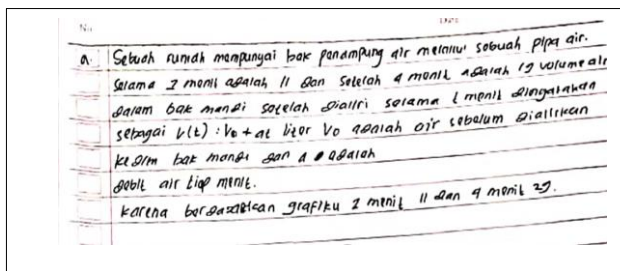 No
DATE
a. Sebuah rumah mempunyai bak penampung air melalui sebuah pipa air.
Selama 2 menit adalah 11 dan setelah 4 menit adalah 19 volume air
dalam bak mandi setelah dialiri selama t menit dingatakan
sebagai V(t) : Vo + at liter Vo adalah air sebelum dialirkan
kedlm bak mandi dan a adalah
debit air tiap menit.
Karena berdasarkan grafiku 2 menit 11 dan 4 menit